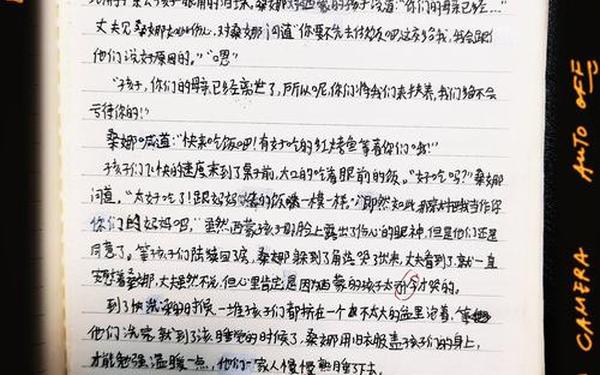 丈夫见桑娜如此伤心，对桑娜问道"你要先去付饭吧这交给我，我会跟
他们说好原因的。""嗯"
"孩子，你们的母亲已经离世了，所以呢，你们将我们来扶养，我们绝不会
亏待你的！"
桑娜喊道："快来吃饭吧！有好吃的红烤鱼等着你们哦！"
孩子们飞快的速度来到了桌子前，大口的吃着眼前的饭。"好吃吗？"桑娜
问道。"太好吃了！跟妈妈烧的饭一模一样。""即然如此那就把我当作你
你们的妈妈吧，"虽然西蒙孩子的脸上露出了伤心的眼神，但是他们还是
同意了。等孩子们陆续回了房，桑娜躲到了角落哭了出来，丈夫看到了就一直
安慰着桑娜，丈夫虽然不说，但心里肯定是因为西蒙的孩子太可怜才哭的。
到了快洗澡的时候，一堆孩子们都挤在一个不太大的盆里泡着，等
他们洗完就到了该睡觉的时候了，桑娜用旧衣服盖孩子们的身上，
才能勉强温暖一点，他们一家人慢慢熟睡了下去。
AUTO OFF
CAMERA